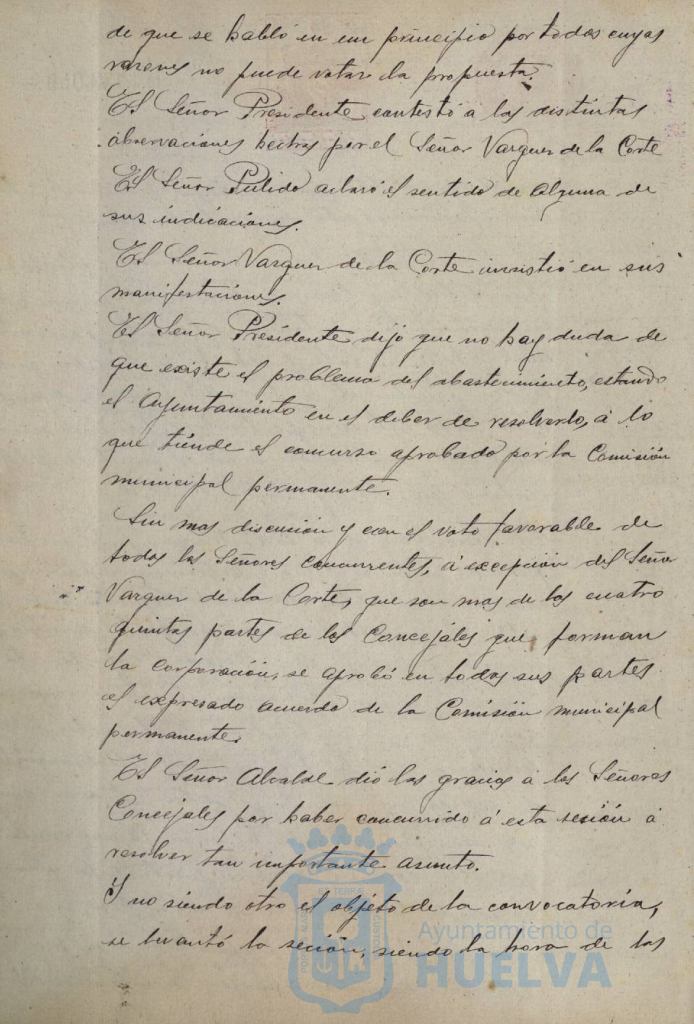 de que se habló en un principio por todas cuyas
razones no puede votar la propuesta.
El Señor Presidente contestó a las distintas
observaciones hechas por el Señor Vazquez de la Corte
El Señor Pulido aclaró el sentido de alguna de
sus indicaciones.
El Señor Vazquez de la Corte insistió en sus
manifestaciones.
El Señor Presidente dijo que no hay duda de
que existe el problema del abastecimiento, estando
el Ayuntamiento en el deber de resolverlo, á lo
que tiende el concurso aprobado por la Comisión
municipal permanente.
Sin mas discusión y con el voto favorable de
todos los Señores concurrentes, á excepción del Señor
Vazquez de la Corte, que son mas de las cuatro
quintas partes de los Concejales que forman
la corporación, se aprobó en todas sus partes
el expresado acuerdo de la Comisión municipal
permanente.
El Señor Alcalde dió las gracias á los Señores
Concejales por haber concurrido á esta sesión á
resolver tan importante asunto.
Y no siendo otro el objeto de la convocatoria,
se levantó la seción, siendo la hora de las
Ayuntamiento de
HUELVA